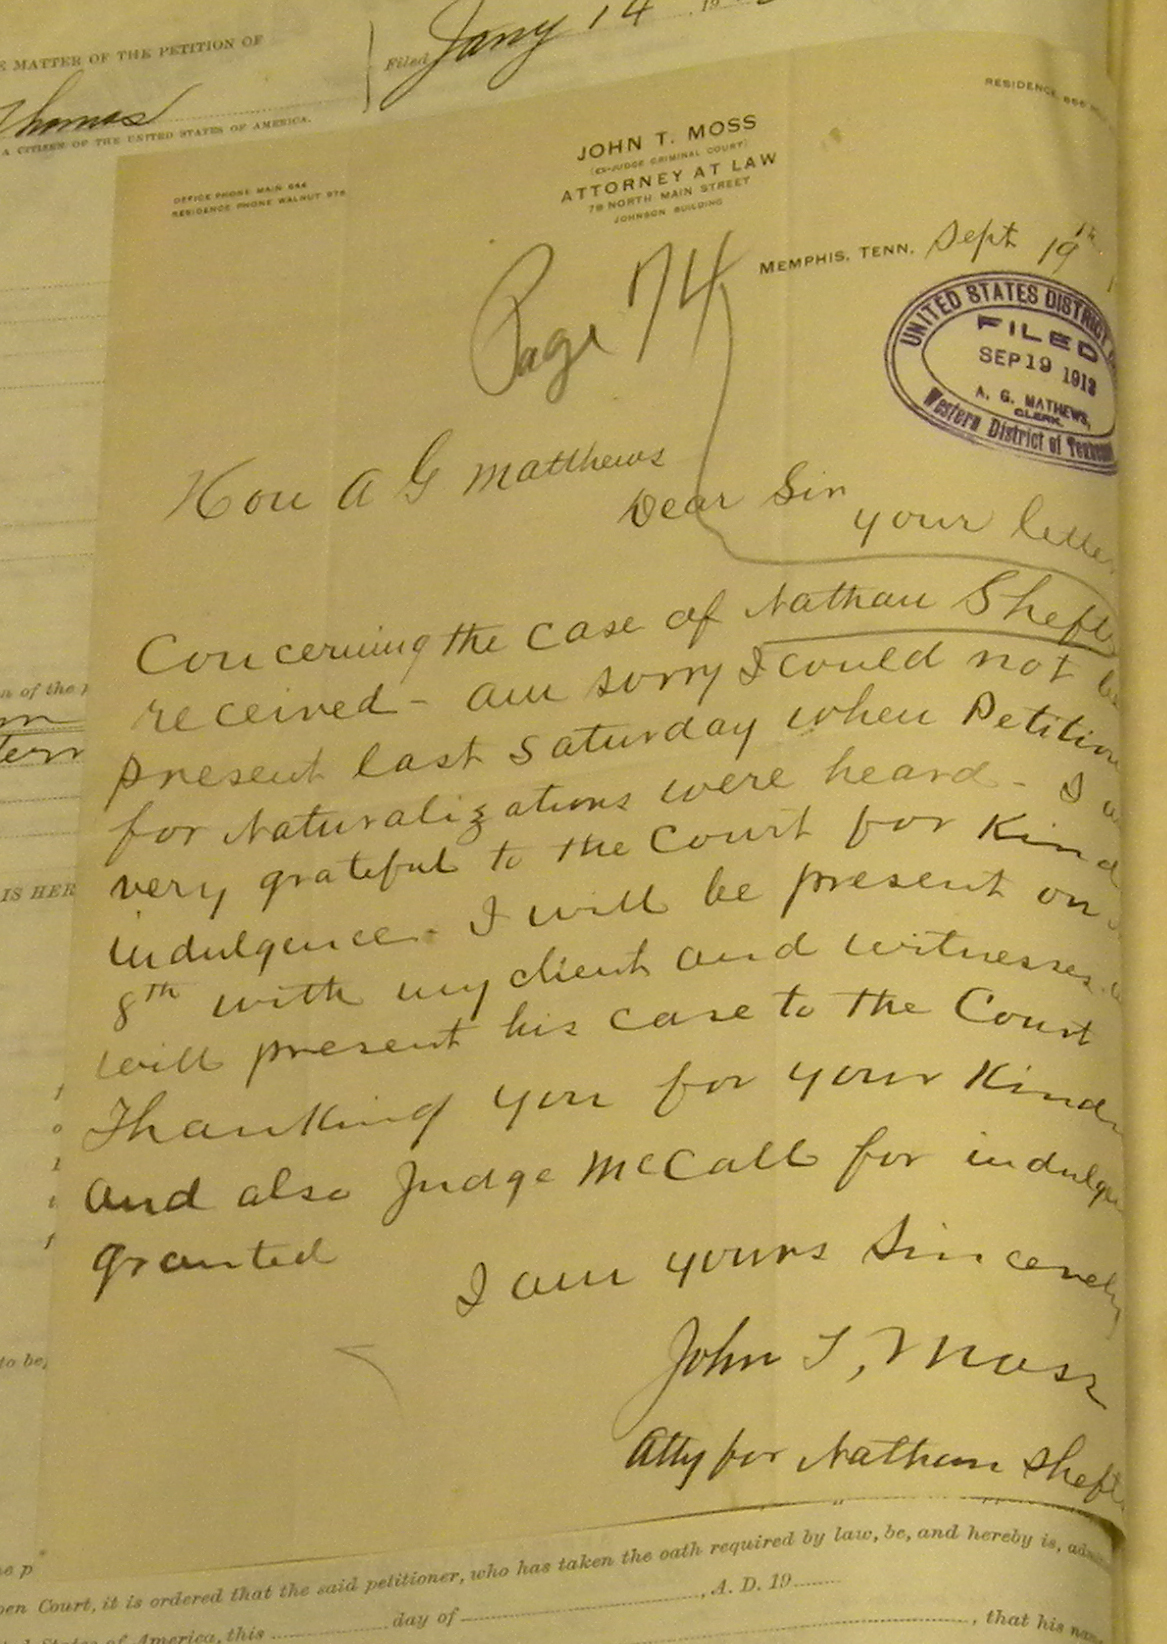 MATTER OF THE PETITION OF
Filed Jany 14 19
Thomas
A CITIZEN OF THE UNITED STATES OF AMERICA.
RESIDENCE,
OFFICE PHONE MAIN 666
RESIDENCE PHONE WALNUT 976
JOHN T. MOSS
(EX-JUDGE CRIMINAL COURT)
ATTORNEY AT LAW
78 NORTH MAIN STREET
JOHNSON BUILDING
MEMPHIS, TENN. Sept 19th
Page 74
UNITED STATES DISTRICT
FILED
SEP 19 1913
A. G. MATHEWS,
CLERK.
Western District of Tennessee
Hon A G Matthews
Dear Sir
your letter
Concerning the case of Nathan Sheft
received - am sorry I could not be
present last Saturday when Petition
for Naturalizations were heard - I
very grateful to the Court for Kind
indulgence - I will be present on
8th with my client and witnesses
will present his case to the Court
Thanking you for your Kind
and also Judge McCall for indulge
granted
I am yours Sincerely
John T, Moss
Atty for Nathan Sheft
of the
IS HER
to be,
Court, it is ordered that the said petitioner, who has taken the oath required by law, be, and hereby is,
States of America, this day of , A. D. 19
, that his